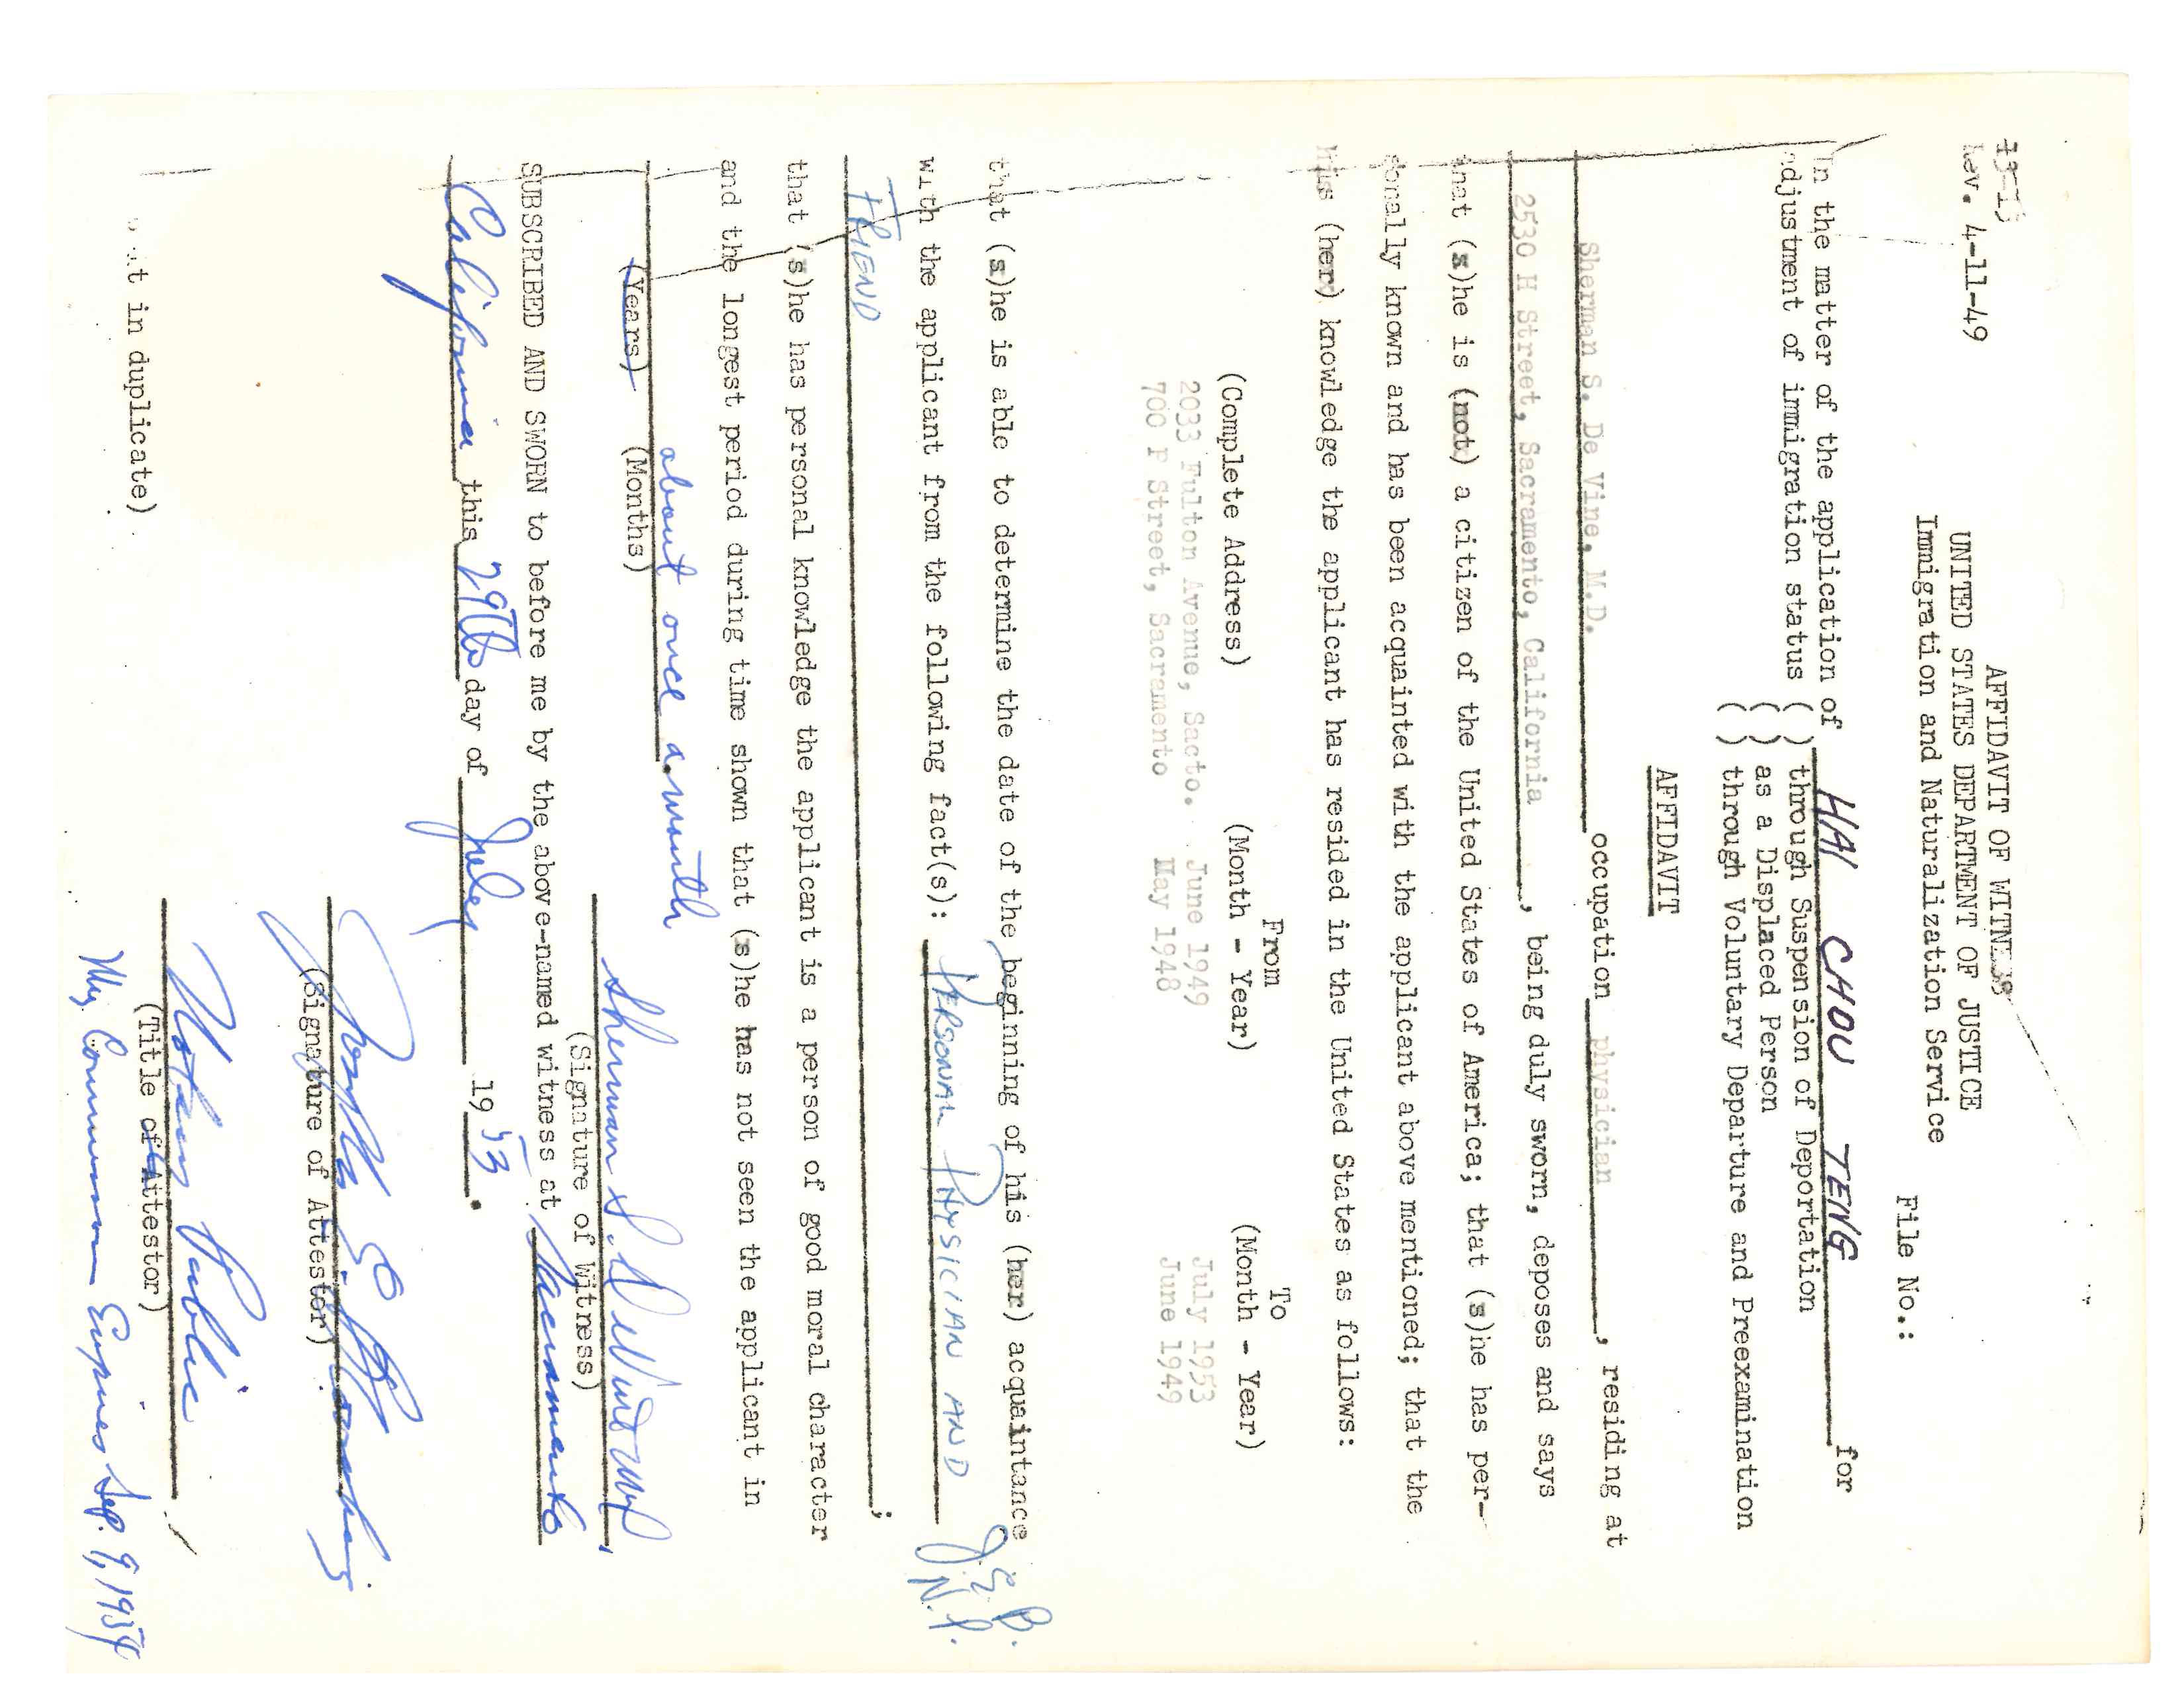 13-15
Rev. 4-11-49
AFFIDAVIT OF WITNESS
UNITED STATES DEPARTMENT OF JUSTICE
Immigration and Naturalization Service
File No.:
In the matter of the application of HAI CHOU TENG for
adjustment of immigration status ( ) through Suspension of Deportation
( ) as a Displaced Person
( ) through Voluntary Departure and Preexamination
AFFIDAVIT
Sherman S. De Vine, M.D. occupation physician, residing at
2530 H Street, Sacramento, California, being duly sworn, deposes and says
that (s)he is (not) a citizen of the United States of America; that (s)he has per-
sonally known and has been acquainted with the applicant above mentioned; that the
his (her) knowledge the applicant has resided in the United States as follows:
From To
(Complete Address) (Month - Year) (Month - Year)
2033 Fulton Avenue, Sacto. June 1949 July 1953
700 P Street, Sacramento May 1948 June 1949
that (s)he is able to determine the date of the beginning of his (her) acquaintance J.E.B.
with the applicant from the following fact(s): PERSONAL PHYSICIAN AND N.P.
FRIEND ;
that (s)he has personal knowledge the applicant is a person of good moral character
and the longest period during time shown that (s)he has not seen the applicant in
about once a month
(Years) (Months)
Sherman S. DeVine MD,
(Signature of Witness)
SUBSCRIBED AND SWORN to before me by the above-named witness at Sacramento
California this 29Th day of July 1953.
Joseph E.
(Signature of Attestor)
Notary Public
(Title of Attestor)
in duplicate)
My Commission Expires Sep. 9, 1954